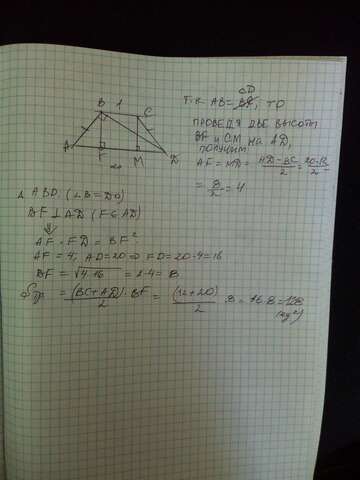 Т.К. AB=CD, ТО
ПРОВЕДЯ ДВЕ ВЫСОТЫ
BF и CM на AD,
ПОЛУЧИМ
AF = MD = AD-BC/2 = 20-12/2 =
= 8/2 = 4
B 1 C
A F M D
20
Δ ABD. (∠B=90)
BF ⊥ AD (F ∈ AD)
⇓
AF · FD = BF²
AF = 4; AD=20 ⇒ FD=20-4=16
BF = √4·16 = 2·4 = 8
Sтр = (BC+AD)/2 · BF = (12+20)/2 · 8 = 16·8=128
(ед²)